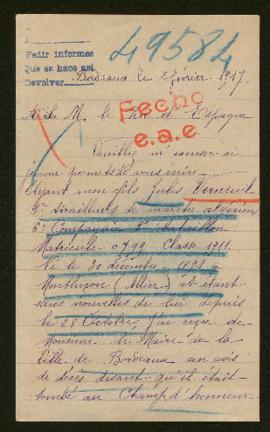 Pedir informes
Que se hace así
Devolver
49584
Bordeaux le 2 février 1917
A S. M. le Roi d'Espagne
Fecho
e.a.e
Veuillez m'excuser si
je me permets de vous écrire
ayant mon fils Jules Verneuil
9e tirailleurs de marche algérien
5e Compagnie Bataillon
Matricule Classe 1911
Né le 20 décembre à
Montluçon (Allier) et étant
sans nouvelles de lui depuis
le 28 Octobre, j'ai reçu de
Monsieur le Maire de la
Ville de Bordeaux un avis
de décès disant qu'il était
tombé au Champ d'honneur